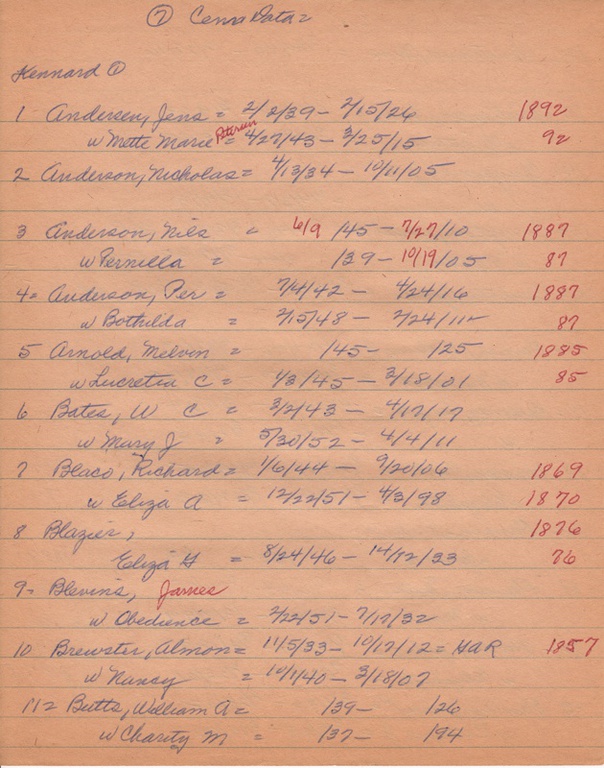 ⑦ Cem Data=
Kennard ①
1 Andersen, Jens = 2/2/39 - 2/15/26 1892
w Mette Marie Petersen = 4/27/43 - 3/25/15 92
2 Anderson, Nicholas = 4/13/34 - 10/11/05
3 Anderson, Nils = 6/9 /45 - 7/27/10 1887
w Pernilla = /39 - 10/19/05 87
4= Anderson, Per = 7/4/42 - 4/24/16 1887
w Bothilda = 2/15/48 - 2/24/11 87
5 Arnold, Melvin = /45 - /25 1885
w Lucretia C = 1/3/45 - 3/18/01 85
6 Bates, W C = 3/2/43 - 4/17/17
w Mary J = 5/30/52 - 4/4/11
7 Blaco, Richard = 1/6/44 - 9/20/06 1869
w Eliza A = 12/22/51 - 4/3/98 1870
8 Blazier, 1876
Eliza H = 8/24/46 - /33 76
9- Blevins, James
w Obedience = 2/22/51 - 7/17/32
10 Brewster, Almon = 11/5/33 - 10/17/12 = GAR 1857
w Nancy = 10/1/40 - 3/18/07
11= Butts, William A = /39 - /26
w Charity M = /37 - /94